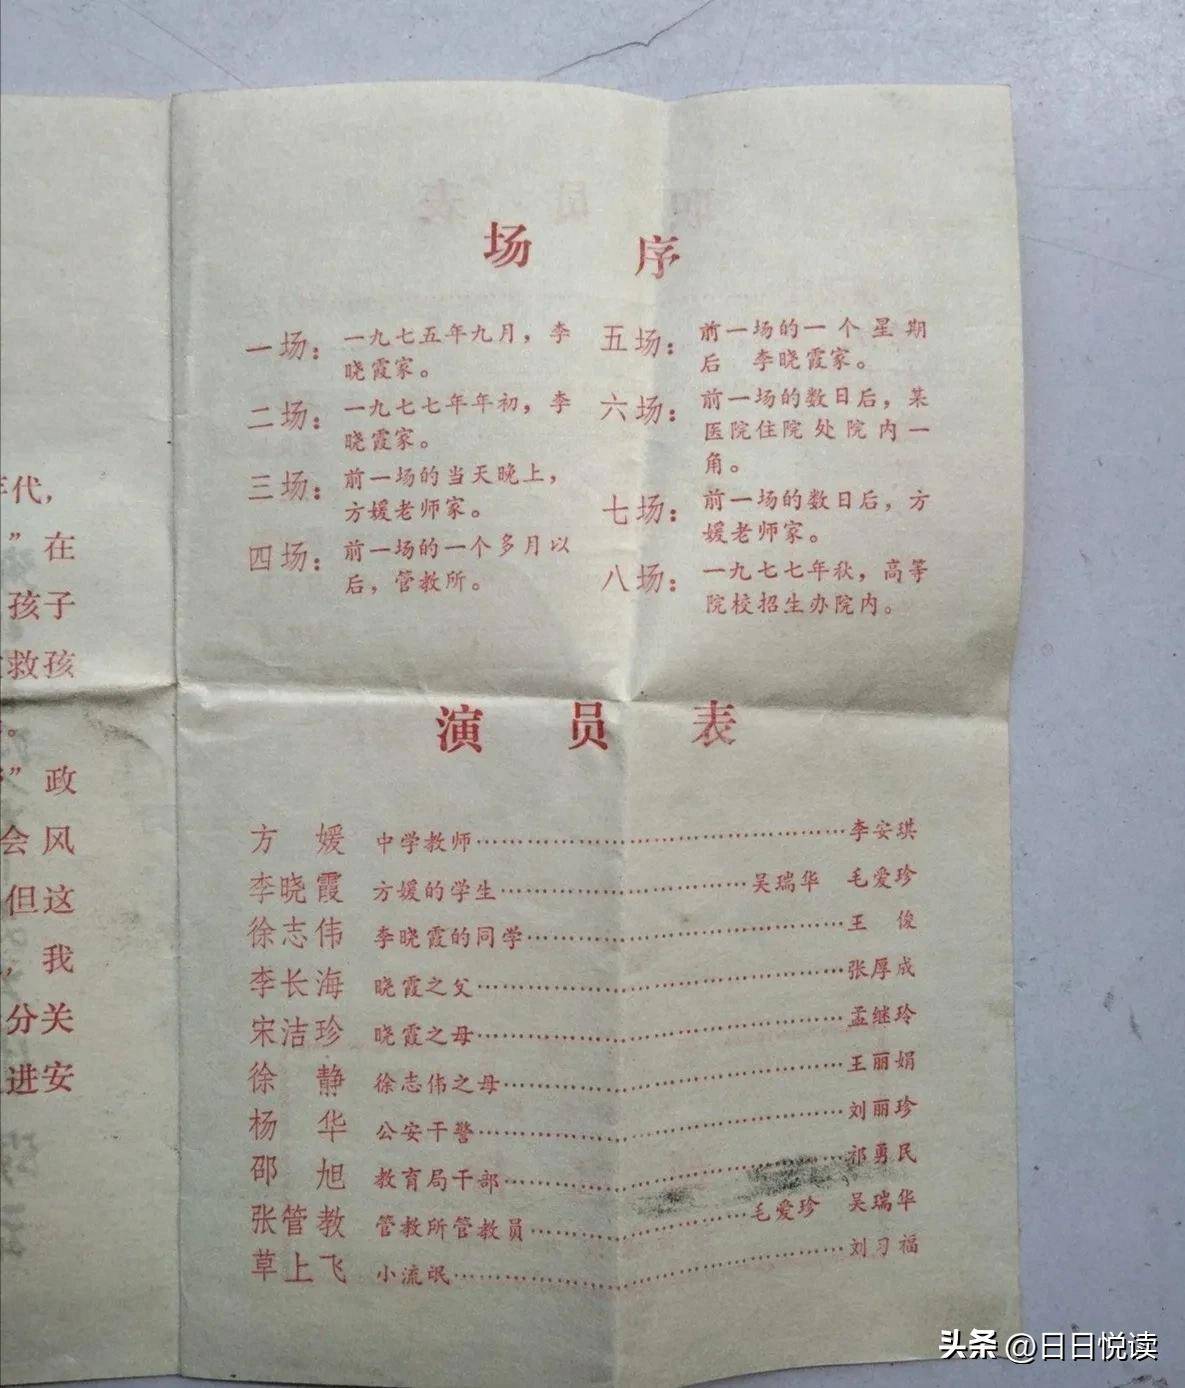 年代，
”在
孩子
救孩
。
”政
会风
但这
，我
分关
进安
场 序
一场：一九七五年九月，李
晓霞家。
二场：一九七七年年初，李
晓霞家。
三场：前一场的当天晚上，
方媛老师家。
四场：前一场的一个多月以
后，管教所。
五场：前一场的一个星期
后 李晓霞家。
六场：前一场的数日后，某
医院住院处院内一
角。
七场：前一场的数日后，方
媛老师家。
八场：一九七七年秋，高等
院校招生办院内。
演 员 表
方 媛 中学教师……………………………李安琪
李晓霞 方媛的学生……………………吴瑞华 毛爱珍
徐志伟 李晓霞的同学……………………………王 俊
李长海 晓霞之父……………………………张厚成
宋洁珍 晓霞之母……………………………孟继玲
徐 静 徐志伟之母……………………………王丽娟
杨 华 公安干警……………………………刘丽珍
邵 旭 教育局干部……………………………祁勇民
张管教 管教所管教员……………………毛爱珍 吴瑞华
草上飞 小流氓……………………………刘习福
头条 @日日悦读